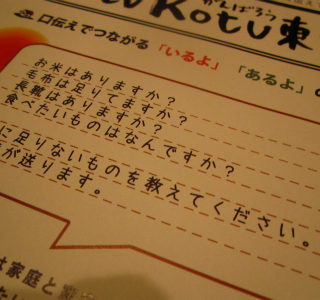 Kotu東
口伝えでつながる 「いるよ」 「あるよ」
お米はありますか？
毛布は足りてますか？
長靴はありますか？
食べたいものはなんですか？
に足りないものを教えてください。
が送ります。
は家庭と